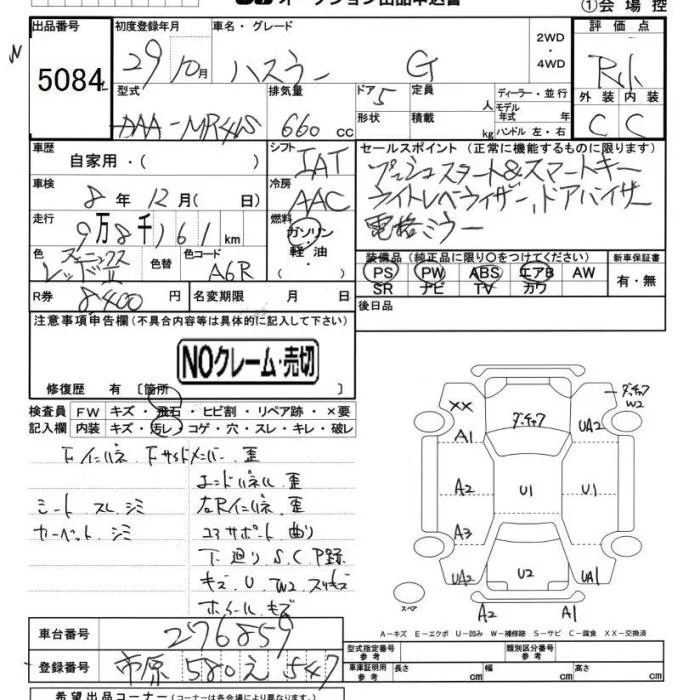 オークション出品申込書
①会場控
出品番号 5084
初度登録年月 29 10月
車名・グレード ハスラー G
2WD
・
4WD
評価点 R小
外装 内装
C C
型式 DAA-MR41S
排気量 660 CC
ドア 5
形状
定員 人
積載 kg
ディーラー・並行
モデル年式 年
ハンドル 左・右
車歴 自家用・( )
シフト IAT
セールスポイント (正常に機能するものに限ります)
プッシュスタート&スマートキー
ライトレベライザー、ドアバイザー
電格ミラー
車検 8年 12月( 日)
冷房 AAC
走行 9万8千161km
燃料 ガソリン
・
軽油
・
色 フェニックスレッドⅡ
色替
色コード A6R
装備品 (純正品に限り○をつけてください)
PS PW ABS エアB AW
SR ナビ TV カワ
新車保証書
有・無
R券 8,400円
名変期限 月 日
後日品
注意事項申告欄(不具合内容等は具体的に記入して下さい)
NOクレーム・売切
修復歴 有 [箇所 ]
検査員 FW キズ・飛石・ヒビ割・リペア跡・×要
記入欄 内装 キズ・汚レ・コゲ・穴・スレ・キレ・破レ
Fインパネ Fサイドメンバー 歪
エンドパネル 歪
シート スレ シミ
左Rインパネ 歪
カーペット シミ
コアサポート 曲り
下廻り S.C.P録
キズ U W2 スリキズ
ホイールキズ
XX
A1
A2
A3
UA2
ダッチャク
U1
U2
UA2
U1
UA1
ダッチャク
W2
スペア
A2
A1
A-キズ E-エクボ U-凹み W-補修跡 S-サビ C-腐食 XX-交換済
車台番号 276859
登録番号 市原 580 え 547
型式指定番号
参考
類別区分番号
参考
車庫証明用
参考
長さ cm
幅 cm
高さ cm
希望出品コーナー(コーナーは各会場により異なります。)